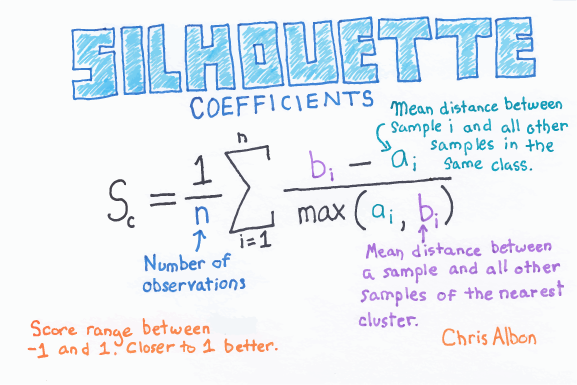 SILHOUETTE
COEFFICIENTS
Mean distance between
sample i and all other
samples in the
same class.
S_c = 1/n n ∑ i=1 b_i − a_i / max(a_i, b_i)
Number of
observations
Mean distance between
a sample and all other
samples of the nearest
cluster.
Score range between
-1 and 1. Closer to 1 better.
Chris Albon